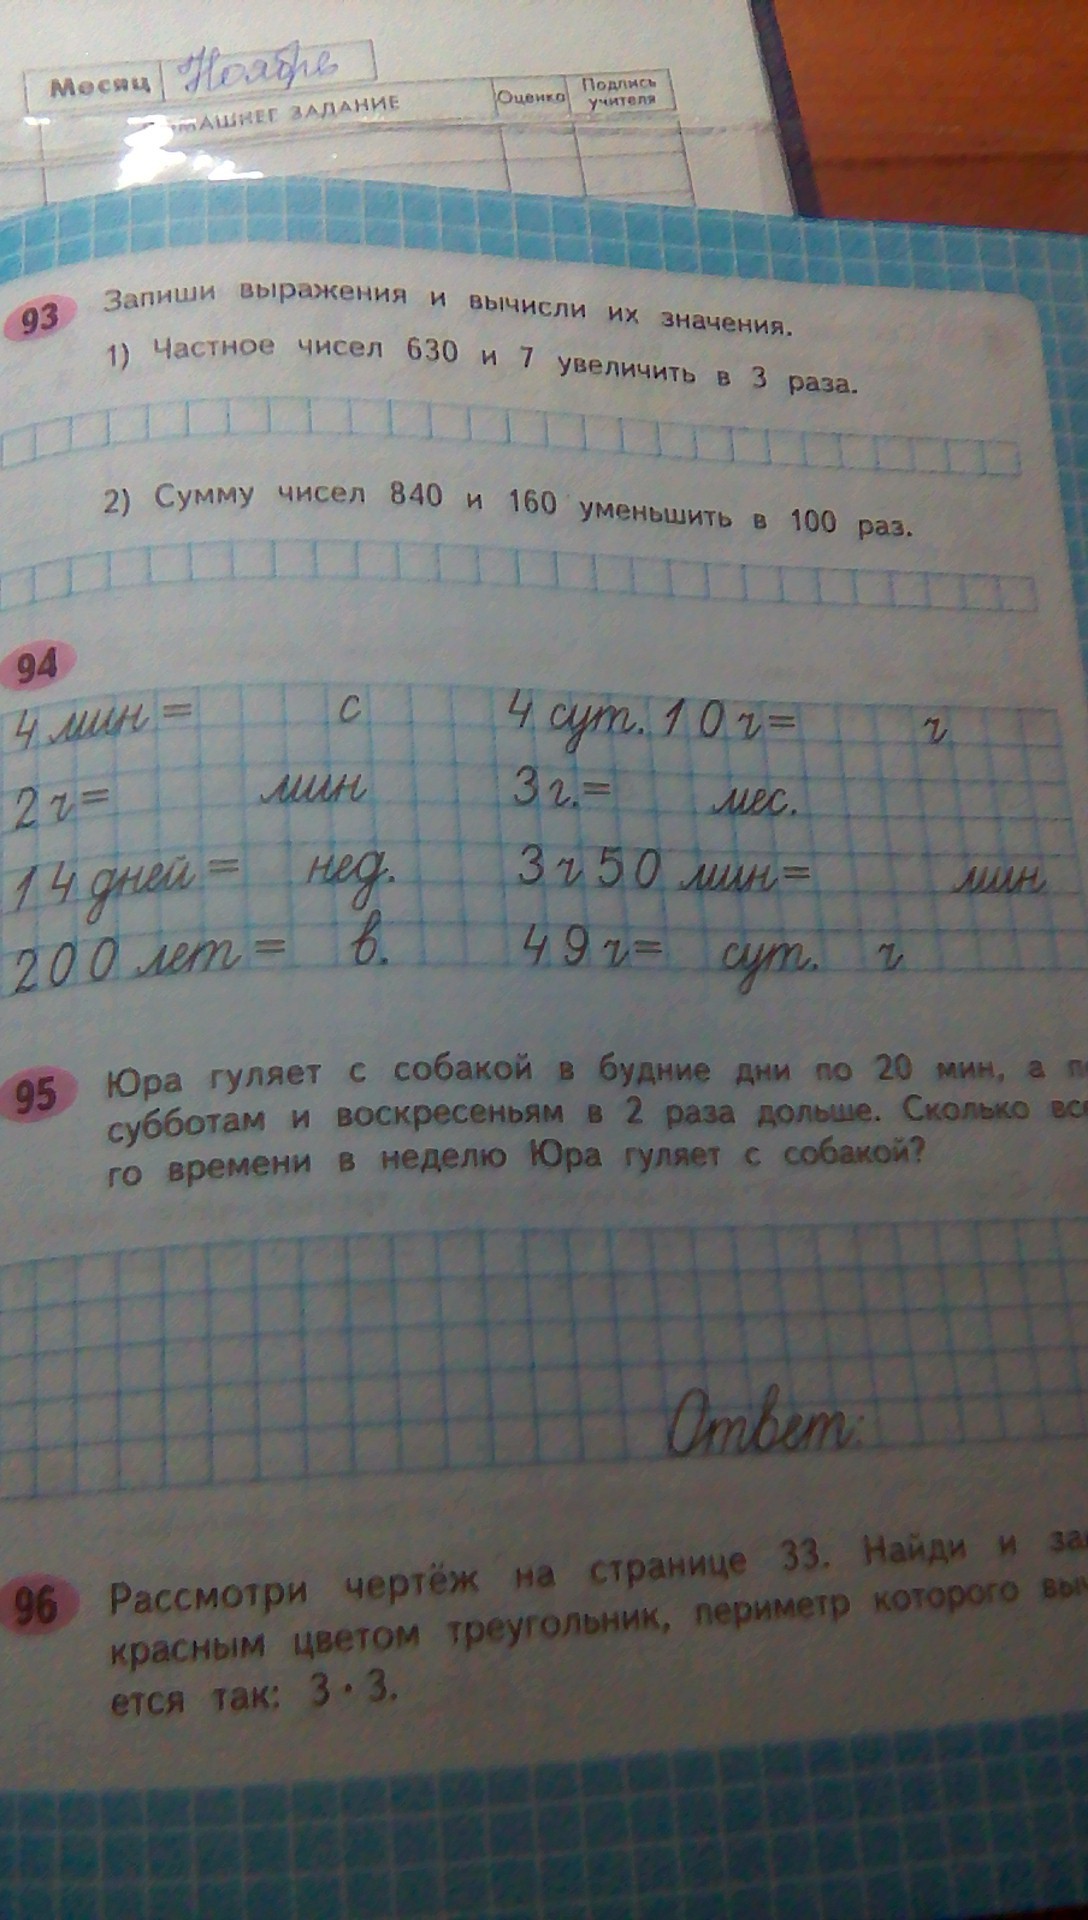 Месяц Ноябрь
ДОМАШНЕЕ ЗАДАНИЕ Оценка Подпись учителя
93 Запиши выражения и вычисли их значения.
1) Частное чисел 630 и 7 увеличить в 3 раза.
2) Сумму чисел 840 и 160 уменьшить в 100 раз.
94
4 мин = с 4 сут. 10 ч = ч
2 ч = мин 3 г. = мес.
14 дней = нед. 3 ч 50 мин = мин
200 лет = в. 49 ч = сут. ч
95 Юра гуляет с собакой в будние дни по 20 мин, а
субботам и воскресеньям в 2 раза дольше. Сколько все
го времени в неделю Юра гуляет с собакой?
Ответ:
96 Рассмотри чертёж на странице 33. Найди и
красным цветом треугольник, периметр которого
ется так: 3 · 3.